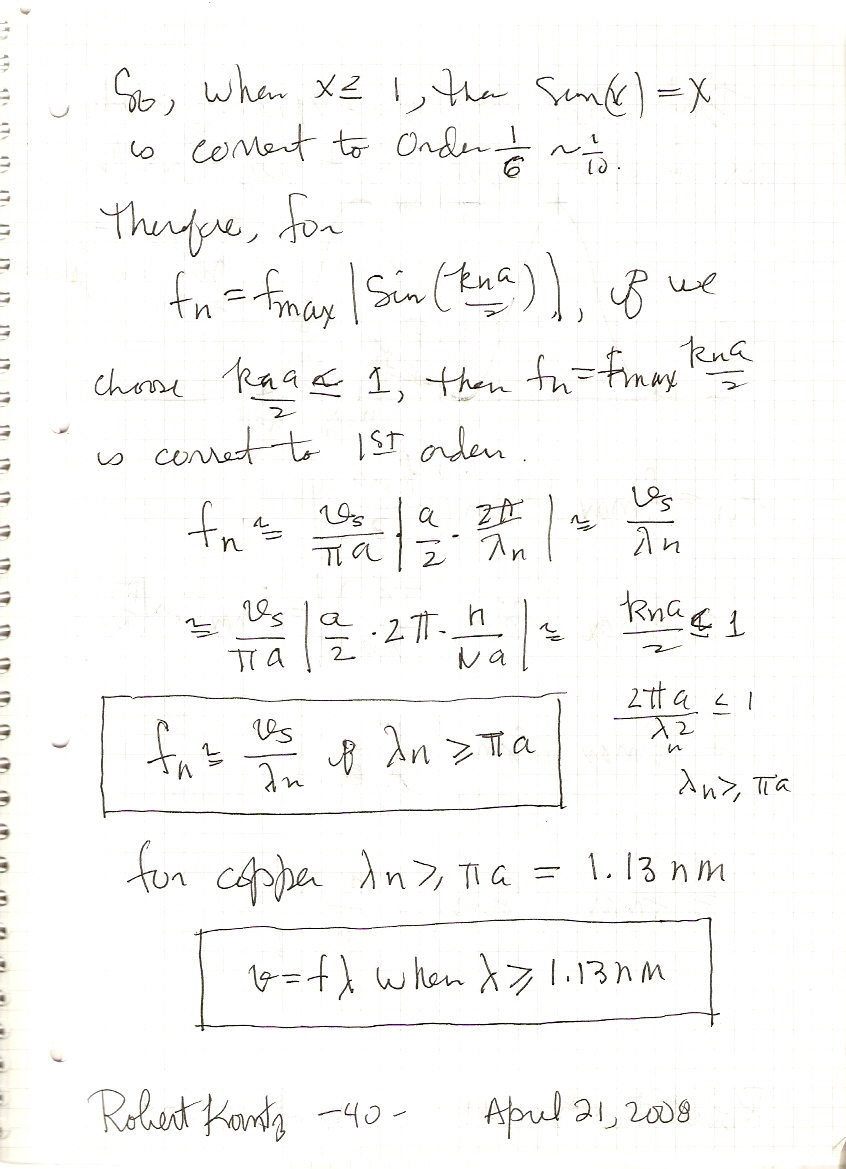 So, when x ≤ 1, then Sin(x) = x
is correct to Order 1/6 ~ 1/10.
Therefore, for
fn = fmax |Sin(kna/2)|, if we
choose kna/2 ≤ 1, then fn = fmax kna/2
is correct to 1ST order.
fn ≅ vs/πa |a/2 · 2π/λn| ≅ vs/λn
≅ vs/πa |a/2 · 2π · n/Na| ≅ kna/2 ≤ 1
2πa/λn2 ≤ 1
fn ≅ vs/λn if λn ≥ πa
λn ≥ πa
for copper λn ≥ πa = 1.13 nm
v = fλ when λ ≥ 1.13 nm
Robert -40- April 21, 2008